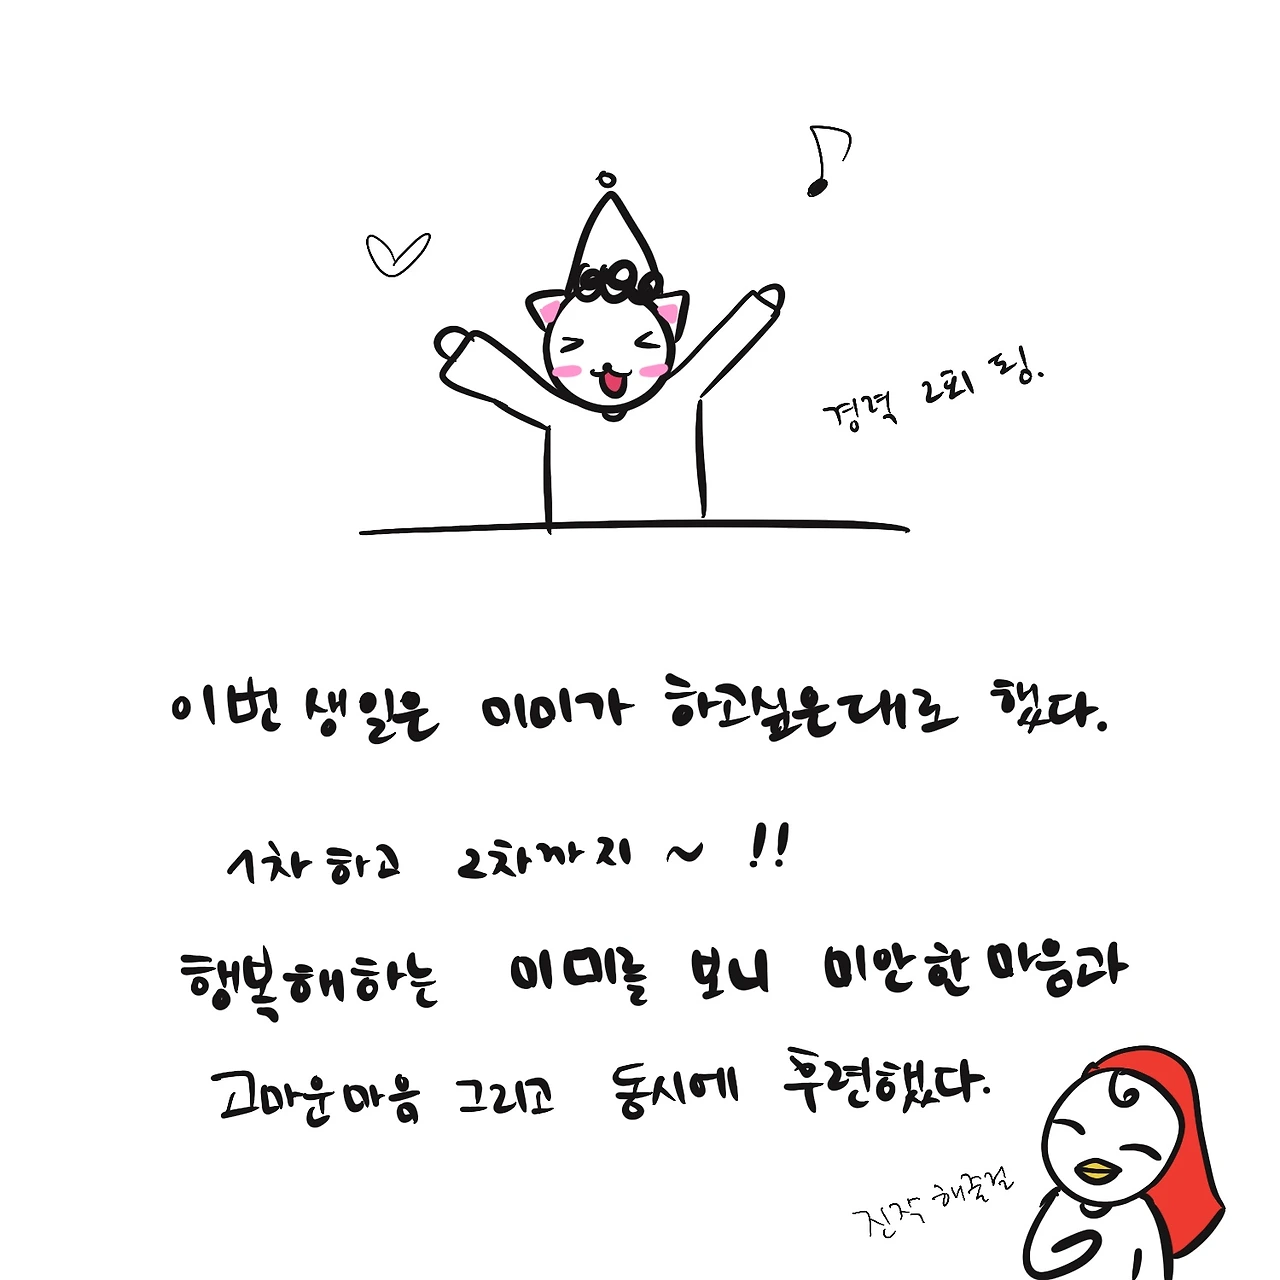 경력 2회 팅.
이번 생일은 미미가 하고싶은대로 했다.
1차하고 2차까지 ~ !!
행복해하는 미미를 보니 미안한마음과
고마운마음 그리고 동시에 후련했다.
진작 해줄걸